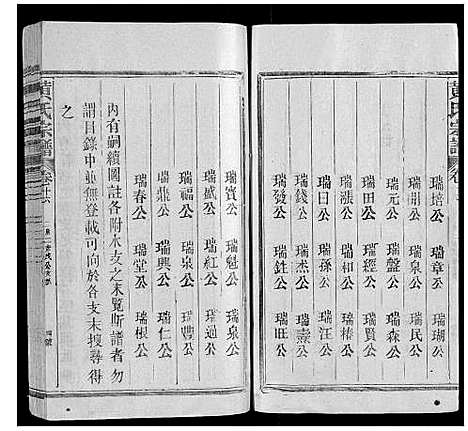 黃氏宗譜
瑞培公 瑞章公 瑞瑚公
瑞開公 瑞泉公 瑞民公
瑞元公 瑞盤公 瑞森公
瑞田公 瑞經公 瑞賢公
瑞漲公 瑞和公 瑞椿公
瑞日公 瑞孫公 瑞汪公
瑞錢公 瑞杰公 瑞燾公
瑞發公 瑞銓公 瑞旺公
瑞賓公 瑞魁公 瑞泉公
瑞盛公 瑞紅公 瑞過公
瑞福公 瑞泉公 瑞豐公
瑞鼎公 瑞興公 瑞仁公
瑞春公 瑞堂公 瑞根公
內有嗣續圖註各附本支之末覽斯譜者勿
謂目錄中並無登載可向於各支末搜尋得
之
黃氏宗譜 卷廿六